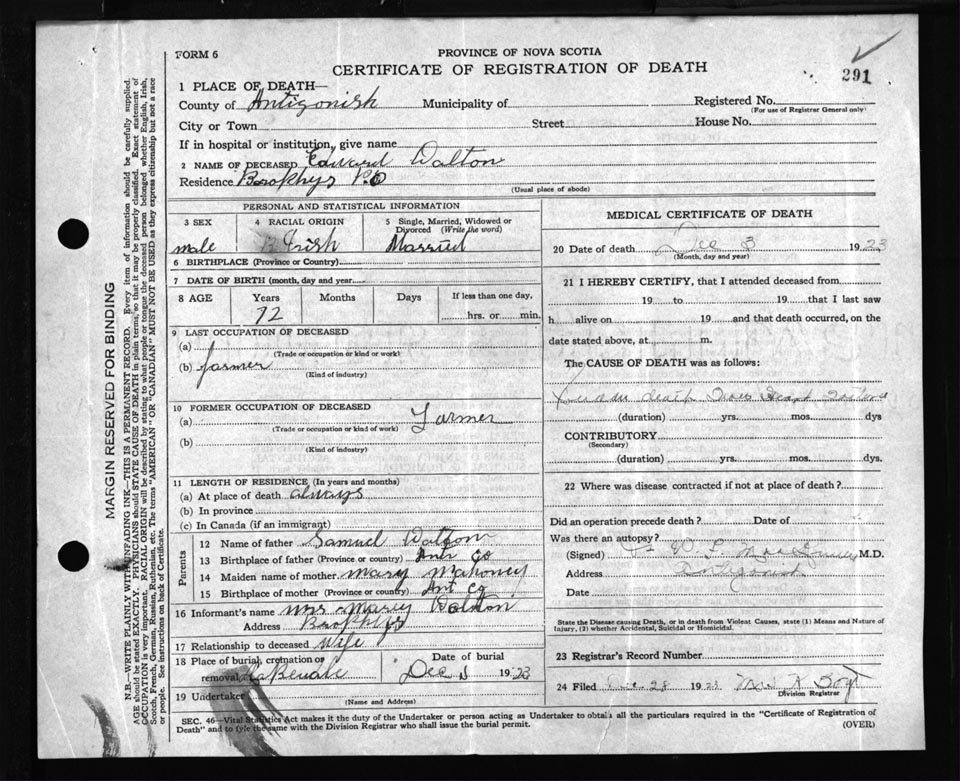 291
FORM 6
PROVINCE OF NOVA SCOTIA
CERTIFICATE OF REGISTRATION OF DEATH
1 PLACE OF DEATH—
County of Antigonish Municipality of Registered No.
(For use of Registrar General only)
City or Town Street House No.
If in hospital or institution, give name
2 NAME OF DECEASED Edward Walton
Residence Brophys P.O
(Usual place of abode)
PERSONAL AND STATISTICAL INFORMATION
3 SEX 4 RACIAL ORIGIN 5 Single, Married, Widowed or Divorced (Write the word)
male Irish Married
6 BIRTHPLACE (Province or Country)
7 DATE OF BIRTH (month, day and year)
8 AGE Years Months Days If less than one day,
72 hrs. or min.
9 LAST OCCUPATION OF DECEASED
(a)
(Trade or occupation or kind of work)
(b) farmer
(Kind of industry)
10 FORMER OCCUPATION OF DECEASED
(a) Farmer
(Trade or occupation or kind of work)
(b)
(Kind of industry)
11 LENGTH OF RESIDENCE (In years and months)
(a) At place of death always
(b) In province
(c) In Canada (if an immigrant)
Parents
12 Name of father Samuel Walton
13 Birthplace of father (Province or country) Ant Co
14 Maiden name of mother Mary Mahoney
15 Birthplace of mother (Province or country) Ant Co
16 Informant's name Mrs Mary Walton
Address Brophys
17 Relationship to deceased Wife
18 Place of burial, cremation or removal Date of burial
Dec 1923
19 Undertaker
(Name and Address)
MEDICAL CERTIFICATE OF DEATH
20 Date of death Dec 3 1923
(Month, day and year)
21 I HEREBY CERTIFY, that I attended deceased from
19 to 19 that I last saw
h alive on 19 and that death occurred, on the
date stated above, at m.
The CAUSE OF DEATH was as follows:
death Heart
(duration) yrs. mos. dys
CONTRIBUTORY
(Secondary)
(duration) yrs. mos. dys.
22 Where was disease contracted if not at place of death?
Did an operation precede death? Date of
Was there an autopsy?
(Signed) W. F. M.D.
Address Antigonish
Date
State the Disease causing Death, or in death from Violent Causes, state (1) Means and Nature of
Injury, (2) whether Accidental, Suicidal or Homicidal.
23 Registrar's Record Number
24 Filed Dec 28 1923
Division Registrar
SEC. 46—Vital Statistics Act makes it the duty of the Undertaker or person acting as Undertaker to obtain all the particulars required in the "Certificate of Registration of
Death" and to fyle the same with the Division Registrar who shall issue the burial permit. (OVER)
MARGIN RESERVED FOR BINDING
N.B.—WRITE PLAINLY WITH UNFADING INK—THIS IS A PERMANENT RECORD. Every item of information should be carefully supplied.
AGE should be stated EXACTLY. PHYSICIANS should STATE CAUSE OF DEATH in plain terms, so that it may be properly classified. Exact statement of
OCCUPATION is very important. RACIAL ORIGIN will be described by stating to what people or tongue the deceased person belonged whether English, Irish,
Scotch, French, German, Russian, Ruthenian, etc. The terms "AMERICAN" OR "CANADIAN" MUST NOT BE USED as they express citizenship but not a race
or people. See instructions on back of Certificate.